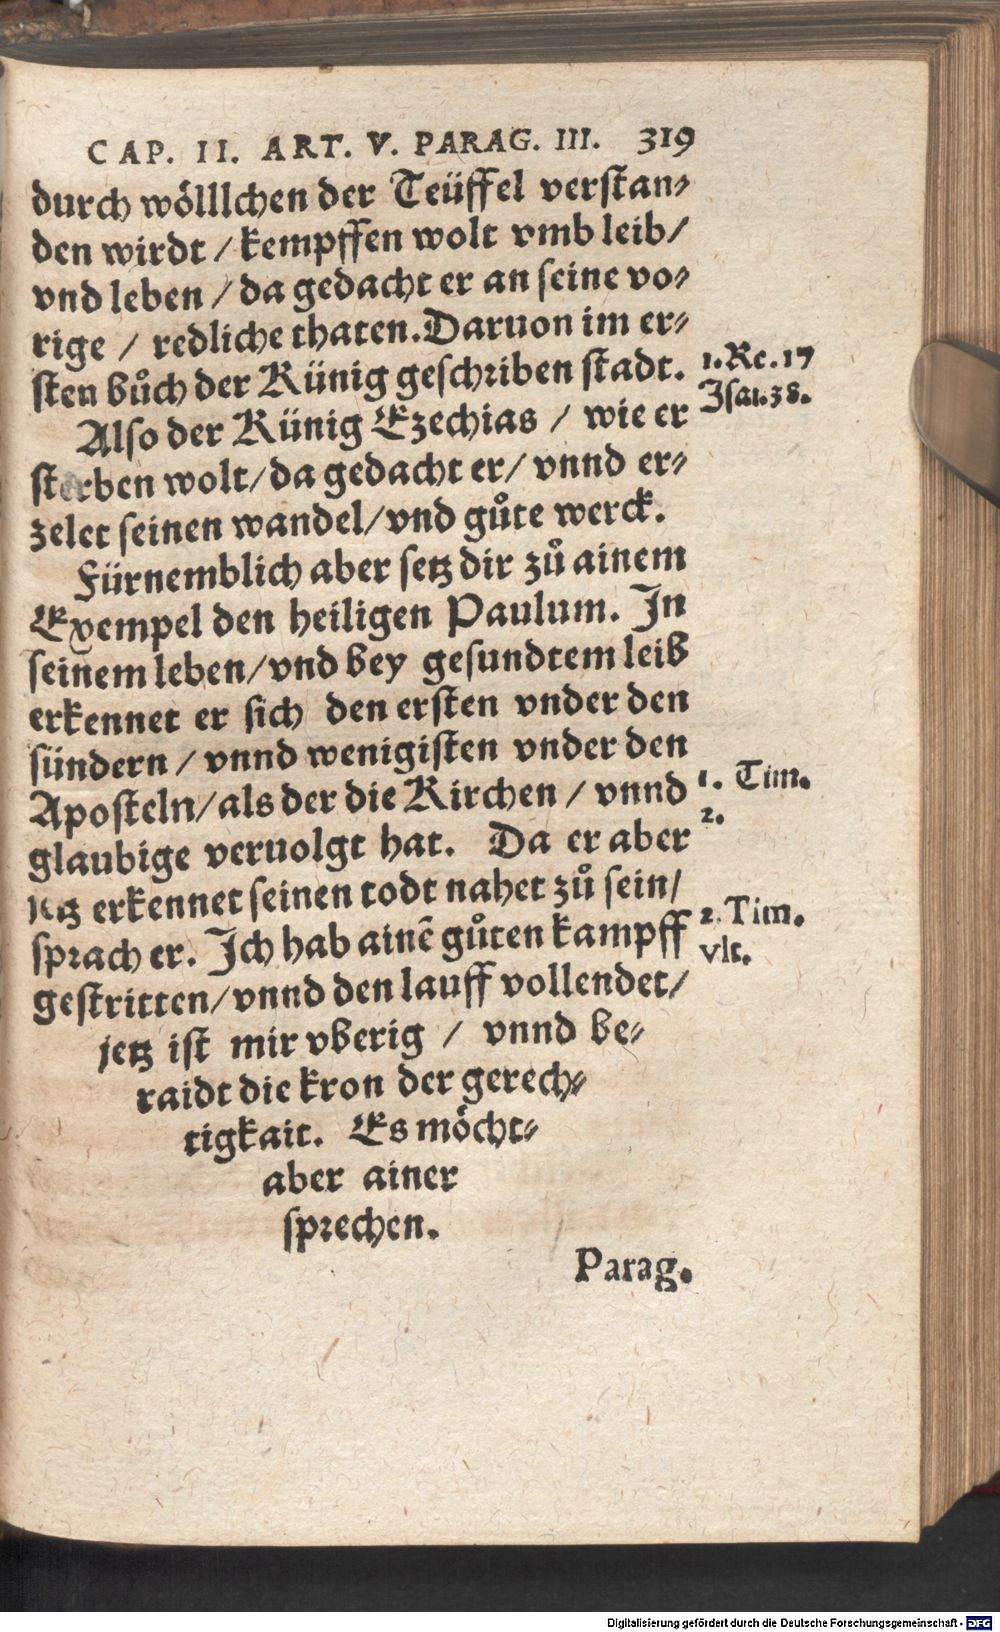 CAP. II. ART. V. PARAG. III. 319
durch wölllchen der Teüffel verstan⸗
den wirdt / kempffen wolt vmb leib/
vnd leben / da gedacht er an seine vo⸗
rige / redliche thaten. Daruon im er⸗
sten bůch der Künig geschriben stadt.
1. Re. 17
Isai. 38.
Also der Künig Ezechias / wie er
sterben wolt/ da gedacht er/ vnnd er⸗
zelet seinen wandel/ vnd gůte werck.
Fürnemblich aber setz dir zů ainem
Exempel den heiligen Paulum. In
seinem leben/ vnd bey gesundtem leib
erkennet er sich den ersten vnder den
sündern / vnnd wenigisten vnder den
Aposteln/ als der die Kirchen / vnnd
1. Tim.
2.
glaubige veruolgt hat. Da er aber
jetz erkennet seinen todt nahet zů sein/
sprach er. Ich hab ainẽ gůten kampff
2. Tim.
vlt.
gestritten/ vnnd den lauff vollendet/
jetz ist mir vberig / vnnd be⸗
raidt die kron der gerech⸗
tigkait. Es möcht⸗
aber ainer
sprechen.
Parag.
Digitalisierung gefördert durch die Deutsche Forschungsgemeinschaft - DFG